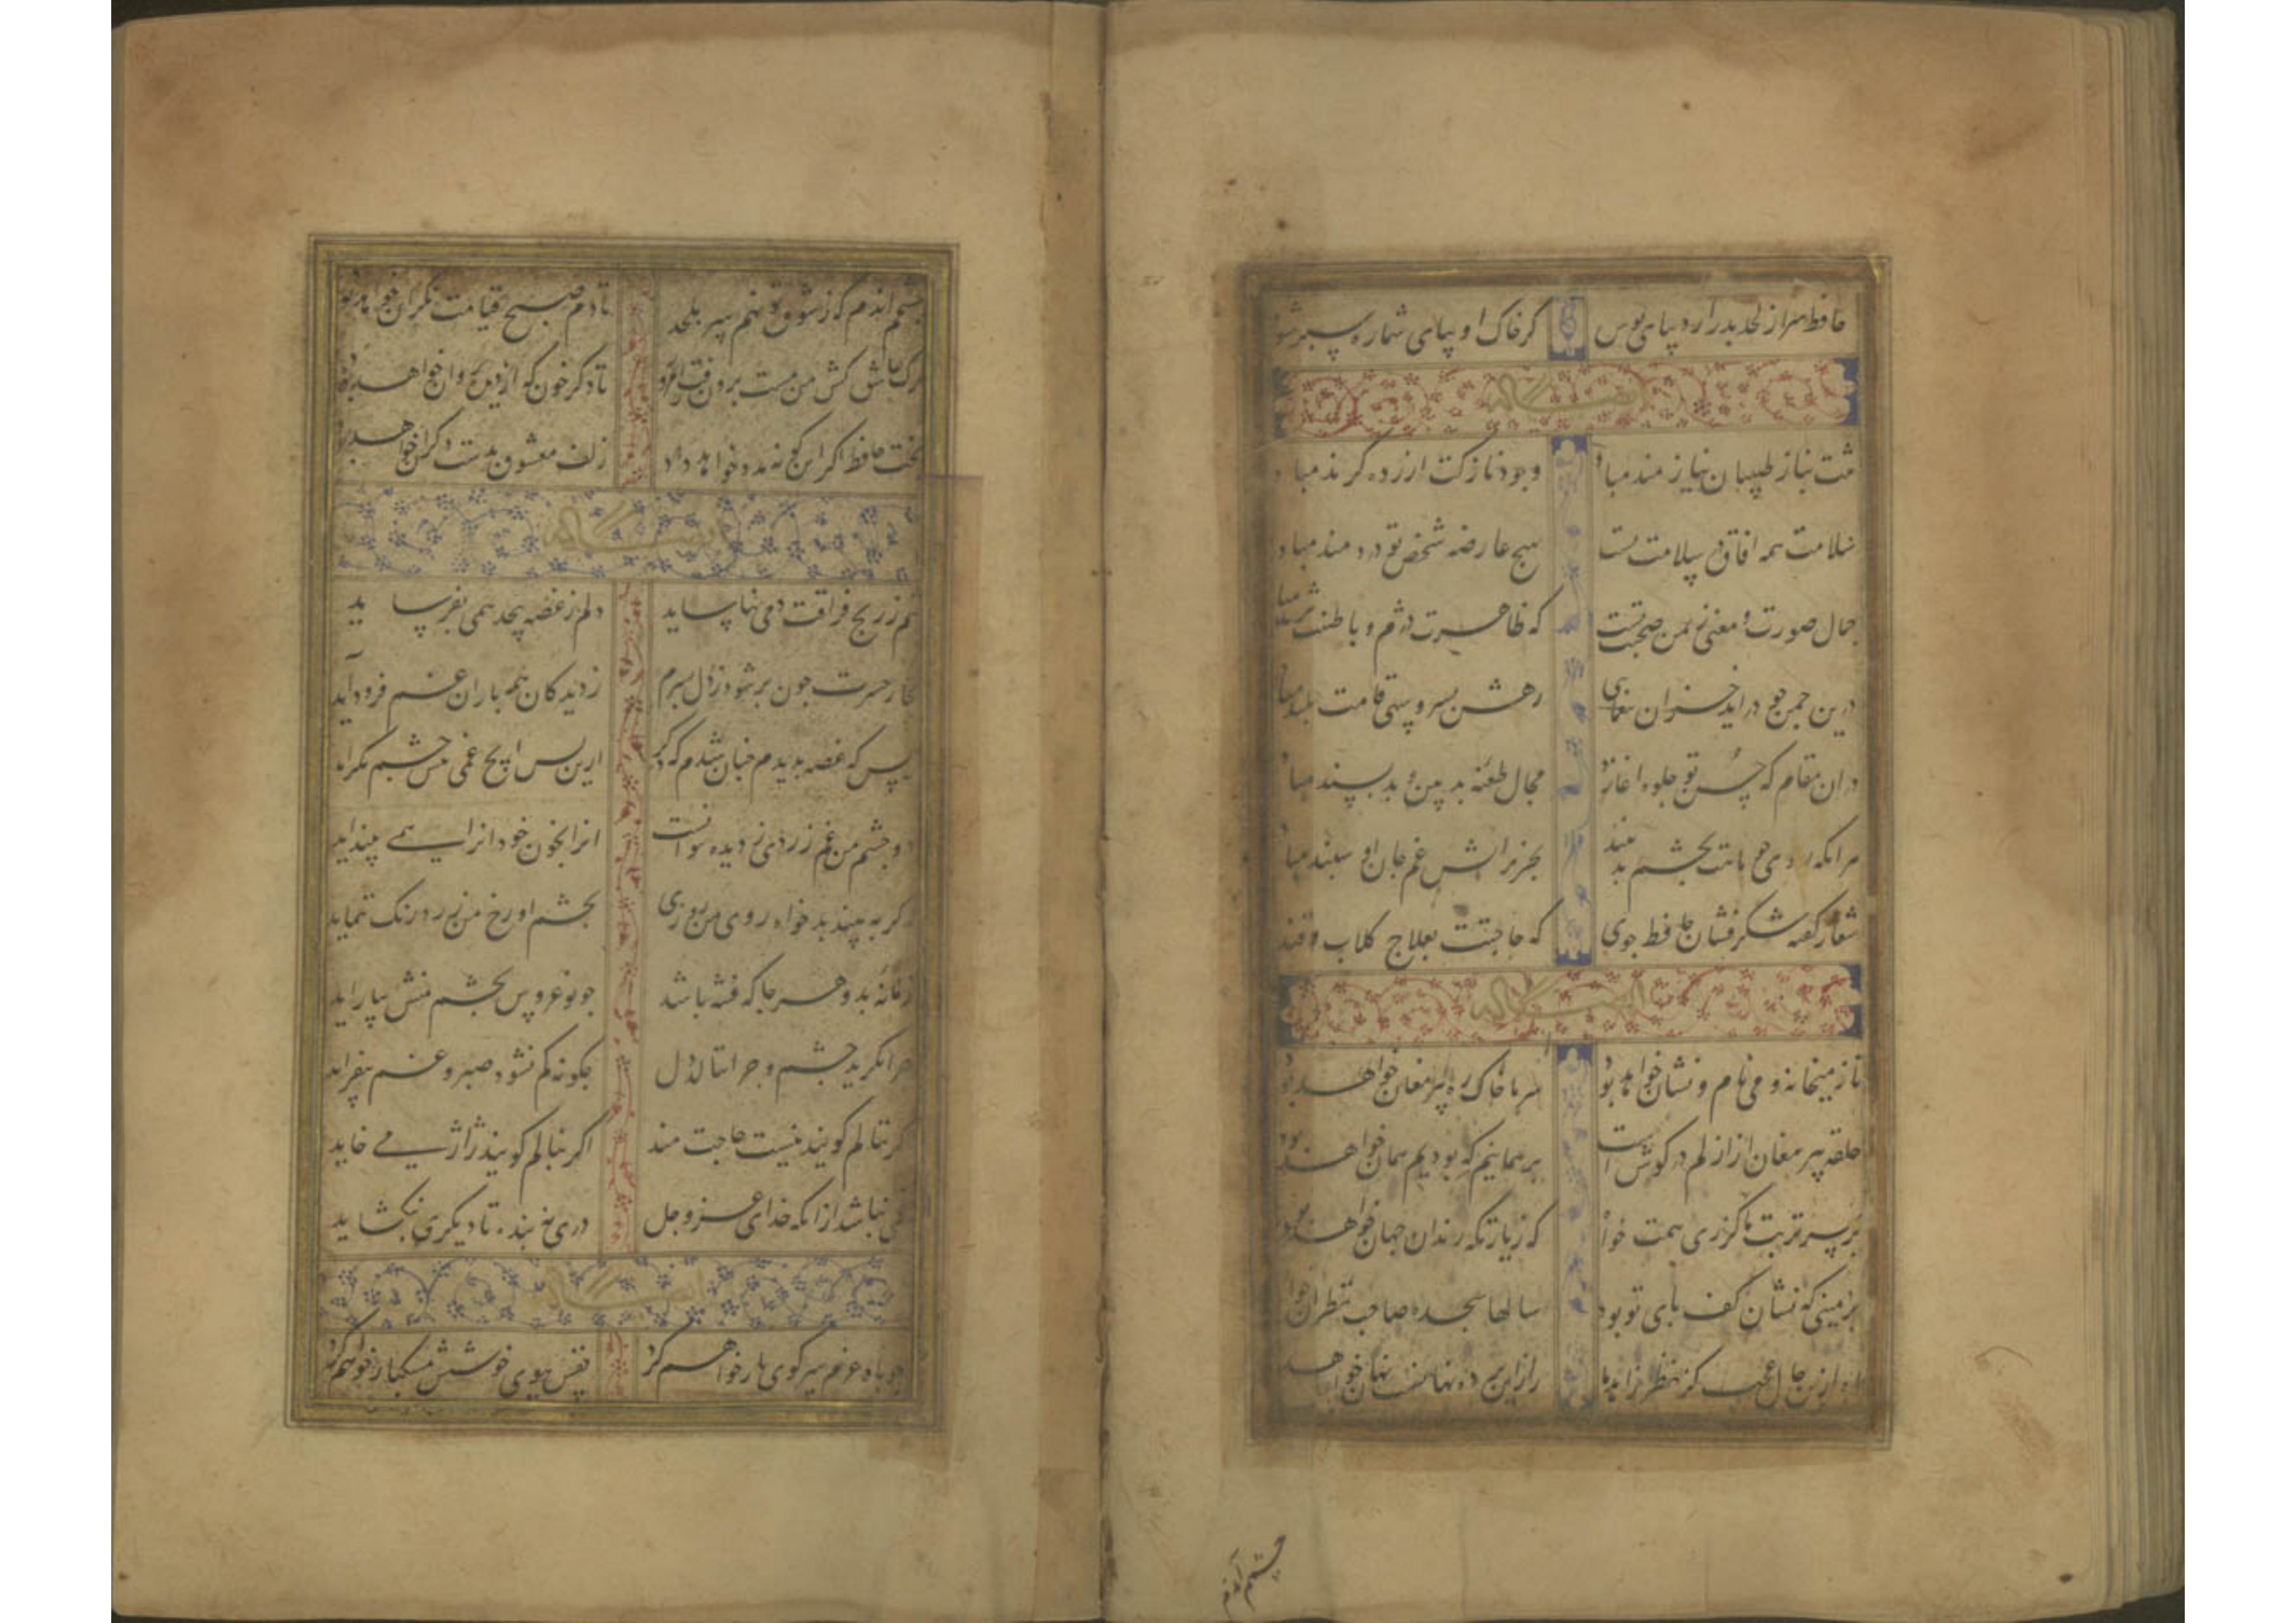 حافظ سر از لحد بدر ارد بپای بوس کر خاک او بپای شما ره سپر شود
وله ایضا
تنت بناز طبیبان نیازمند مباد وجود نازکت ازرده کزند مباد
سلامت همه افاق در سلامت تست بهیچ عارضه شخص تو دردمند مباد
جمال صورت و معنی ز یمن صحبت تست که ظاهرت دژم و باطنت نژند مباد
درین چمن چو دراید خزان بیغمای رهش بسرو سهی قامت بلند مباد
دران مقام که حسن تو جلوه اغازد مجال طعنه بدبین و بدپسند مباد
هرانکه روی چو ماهت بچشم بد بیند بجز بر اتش غم جان او سپند مباد
شفا ز کفته شکرفشان حافظ جوی که حاجتت بعلاج کلاب و قند
تا ز میخانه و می نام و نشان خواهد بود سر ما خاک ره پیر مغان خواهد بود
حلقه پیر مغان از ازلم در کوش است بر همانیم که بودیم همان خواهد بود
بر سر تربت ما کر کزری همت خواه که زیارتکه رندان جهان خواهد بود
بر زمینی که نشان کف پای تو بود سالها سجده صاحب نظران خوا
راز این پرده نهانست نهان خواهد
چشم اندم
چشم اندم که ز شوق تو نهم سر بلحد تا دم صبح قیامت نکران خواهد بود
ترک عاشق کش من مست برون رفت امروز تا دکر خون که از دیده روان خواهد بود
بخت حافظ کر این کونه مدد خواهد داد زلف معشوق بدست دکران خواهد بود
تنم ز رنج فراقت دمی نیاساید دلم ز غصه بیحد همی بفرساید
بخار حسرت چون بر شود ز دل بسرم ز دیدکان همه باران غم فرود آید
ز بس که غصه بدیدم چنان شدم که دکر ازین پس ایچ غمی پیش چشم نکراید
دو چشم من غم زردی ز دیده نتوانست انرا بخون خود انرا همی بینداید
که کر ببیند بدخواه روی من روزی بچشم او رخ من زرد رنک ننماید
زمانه بد و هر جا که فتنه باشد چو نوعروس بچشم منش بیاراید
چرا نکرید چشم و چرا ننالد دل چکونه کم نشود صبر و غم نیفزاید
کر ننالم کویند نیست حاجت مند اکر بنالم کویند ژاژ می خاید
غمی نباشد ازانکه خدای عز و جل دری نه بندد تا دیکری نکشاید
چو باد عزم سر کوی یار خواهم کرد نفس ببوی خوشش مشکبار خواهم کرد